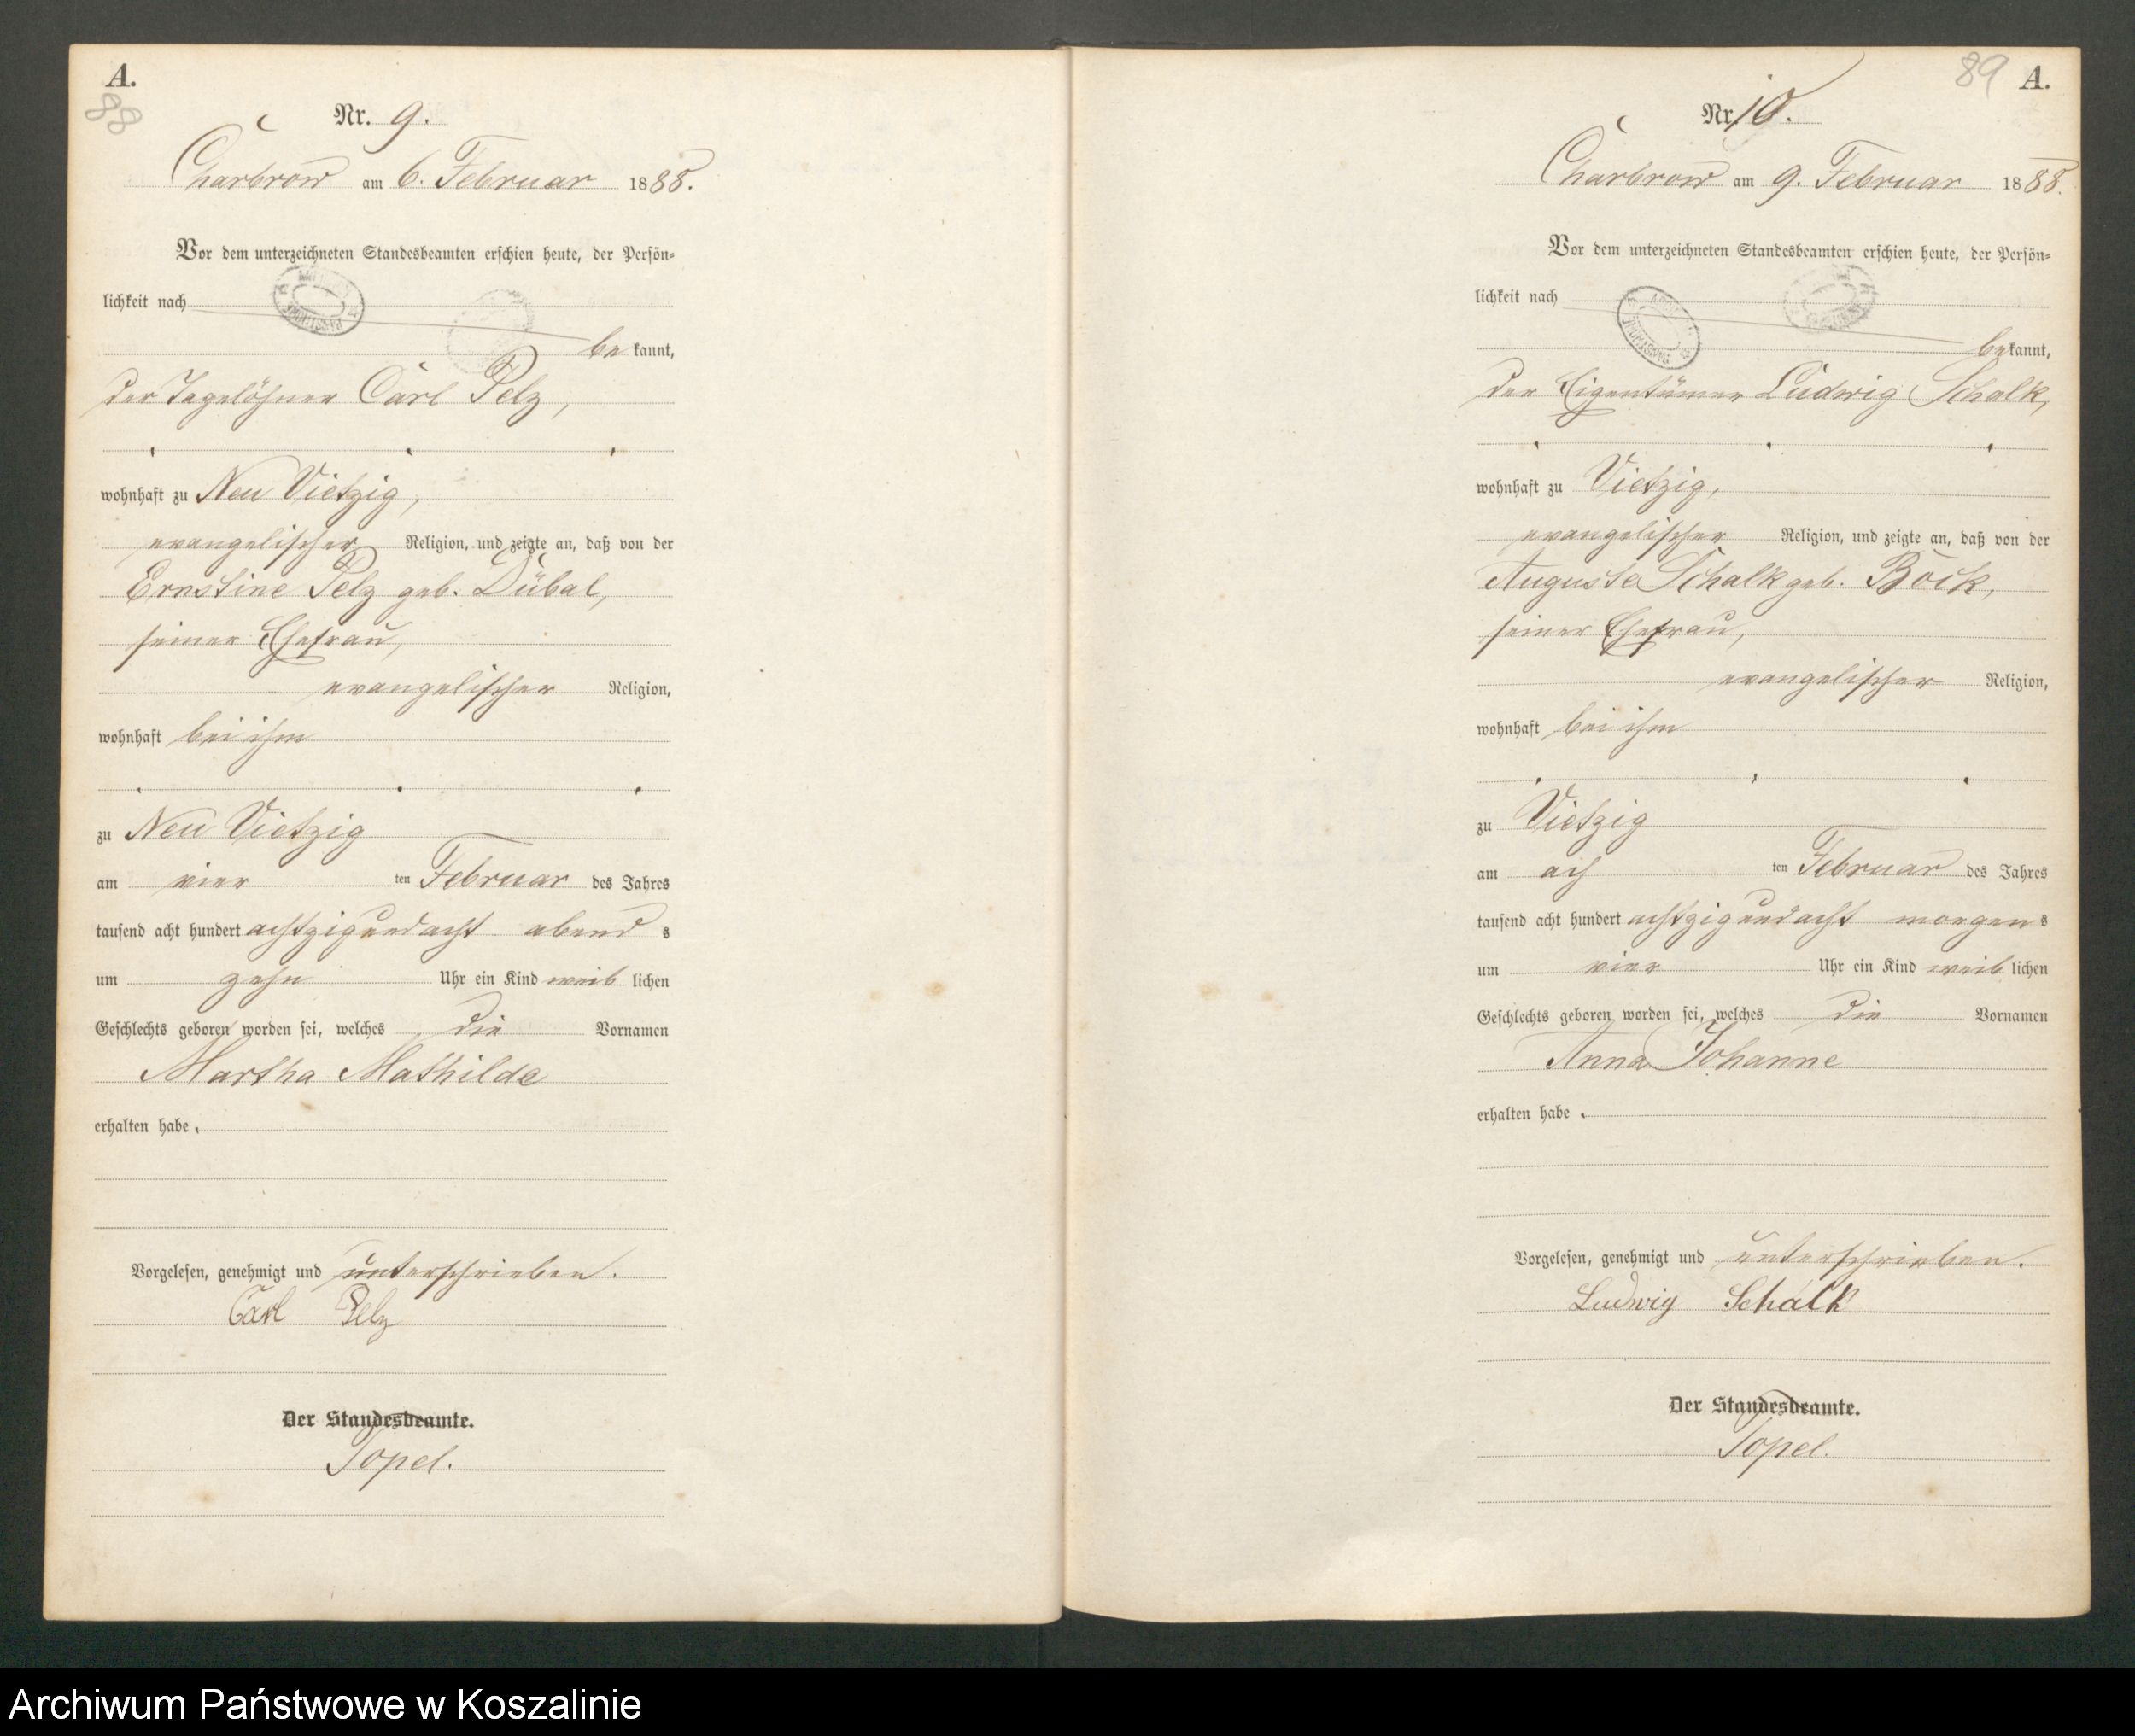 A.
88
Nr. 9.
Charbrow am 6. Februar 1888.
Vor dem unterzeichneten Standesbeamten erschien heute, der Persön-
lichkeit nach
bekannt,
der Tagelöhner Carl Pelz,
wohnhaft zu Neu Vietzig,
evangelischer Religion, und zeigte an, daß von der
Ernstine Pelz geb. Dübal,
seiner Ehefrau,
evangelischer Religion,
wohnhaft bei ihm
zu Neu Vietzig
am vier ten Februar des Jahres
tausend acht hundert achtzigundacht abend s
um zehn Uhr ein Kind weib lichen
Geschlechts geboren worden sei, welches die Vornamen
Martha Mathilde
erhalten habe.
Vorgelesen, genehmigt und unterschrieben.
Carl Pelz
Der Standesbeamte.
Topel.
89 A.
Nr. 10.
Charbrow am 9. Februar 1888.
Vor dem unterzeichneten Standesbeamten erschien heute, der Persön-
lichkeit nach
bekannt,
der Eigentümer Ludwig Schalk,
wohnhaft zu Vietzig,
evangelischer Religion, und zeigte an, daß von der
Auguste Schalk geb. Böck,
seiner Ehefrau,
evangelischer Religion,
wohnhaft bei ihm
zu Vietzig
am ach ten Februar des Jahres
tausend acht hundert achtzigundacht morgen s
um vier Uhr ein Kind weib lichen
Geschlechts geboren worden sei, welches die Vornamen
Anna Johanne
erhalten habe.
Vorgelesen, genehmigt und unterschrieben.
Ludwig Schalk
Der Standesbeamte.
Topel.
Archiwum Państwowe w Koszalinie